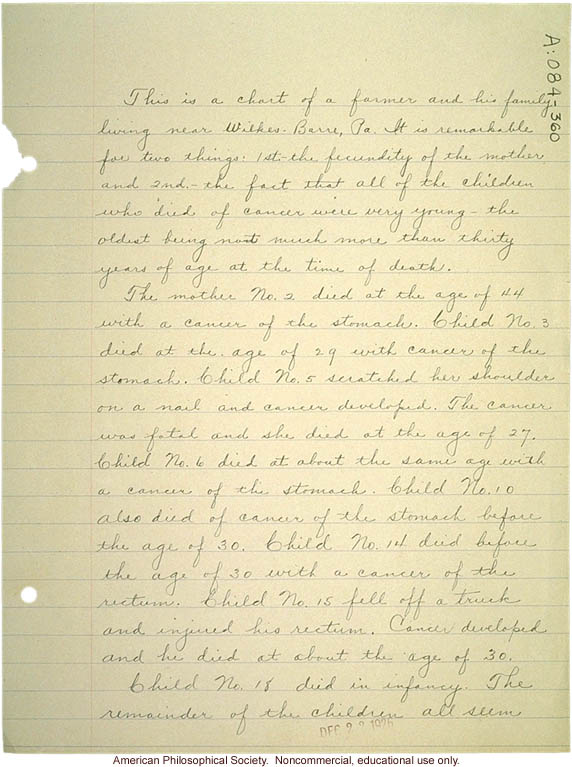 A:084-360
This is a chart of a farmer and his family
living near Wilkes-Barre, Pa. It is remarkable
for two things: 1st- the fecundity of the mother
and 2nd.- the fact that all of the children
who died of cancer were very young - the
oldest being not much more than thirty
years of age at the time of death.
The mother No. 2 died at the age of 44
with a cancer of the stomach. Child No. 3
died at the age of 29 with cancer of the
stomach. Child No. 5 scratched her shoulder
on a nail and cancer developed. The cancer
was fatal and she died at the age of 27.
Child No. 6 died at about the same age with
a cancer of the stomach. Child No. 10
also died of cancer of the stomach before
the age of 30. Child No. 14 died before
the age of 30 with a cancer of the
rectum. Child No. 15 fell off a truck
and injured his rectum. Cancer developed
and he died at about the age of 30.
Child No. 18 died in infancy. The
remainder of the children all seem
DEC 22 1926
American Philosophical Society. Noncommercial, educational use only.